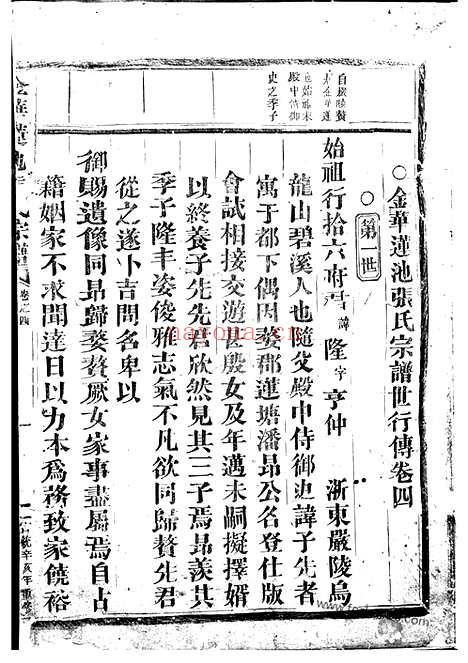 自嚴陵贅
於金華蓮
池始祖宋
殿中侍御
史之季子
○金華蓮池張氏宗譜世行傳卷四
○第一世
始祖行拾六府君諱隆字亨仲 浙東嚴陵烏
龍山碧溪人也隨父殿中侍御史諱子先者
寓于都下偶因婺郡蓮塘潘昂公名登仕版
會試相接交遊甚殷女及年邁未嗣擬擇婿
以終養子先先君欣然見其三子焉昂羨其
季子隆丰姿俊雅志氣不凡欲同歸贅先君
從之遂卜吉問名卑以
御賜遺像同昂歸婺贅厥女家事盡屬焉自占
籍姻家不求聞達日以力本爲務致家饒裕
金華蓮池張氏宗譜
卷之四
統辛亥年重修
haroma.com